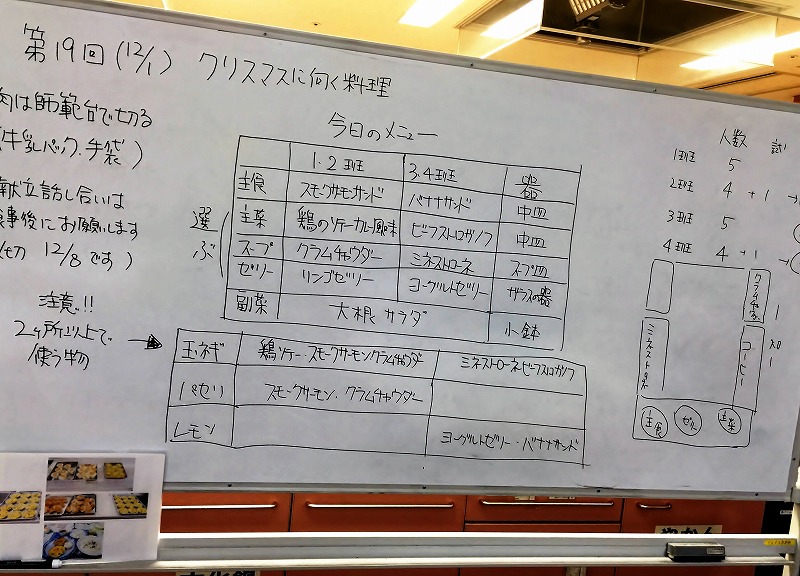 第19回(12/1) クリスマスに向く料理
肉は師範台で切る
(牛乳パック、手袋)
献立話し合いは
食事後にお願いします
(〆切 12/8 です)
注意!!
2ヶ所以上で
使う物
今日のメニュー
選ぶ
1・2班 3・4班 器
主食 スモークサーモンサンド バナナサンド 中皿
主菜 鶏のソテーカレー風味 ビーフストロガノフ 中皿
スープ クラムチャウダー ミネストローネ スープ皿
ゼリー リンゴゼリー ヨーグルトゼリー ガラスの器
副菜 大根サラダ 小鉢
玉ネギ 鶏ソテー・スモークサーモン・クラムチャウダー ミネストローネ・ビーフストロガノフ
パセリ スモークサーモン・クラムチャウダー
レモン ヨーグルトゼリー・バナナサンド
人数 試
1班 5
2班 4 +1
3班 5
4班 4 +1
クラムチャウダー
ミネストローネ
コーヒー
主食 ゼリー 主菜
やかん